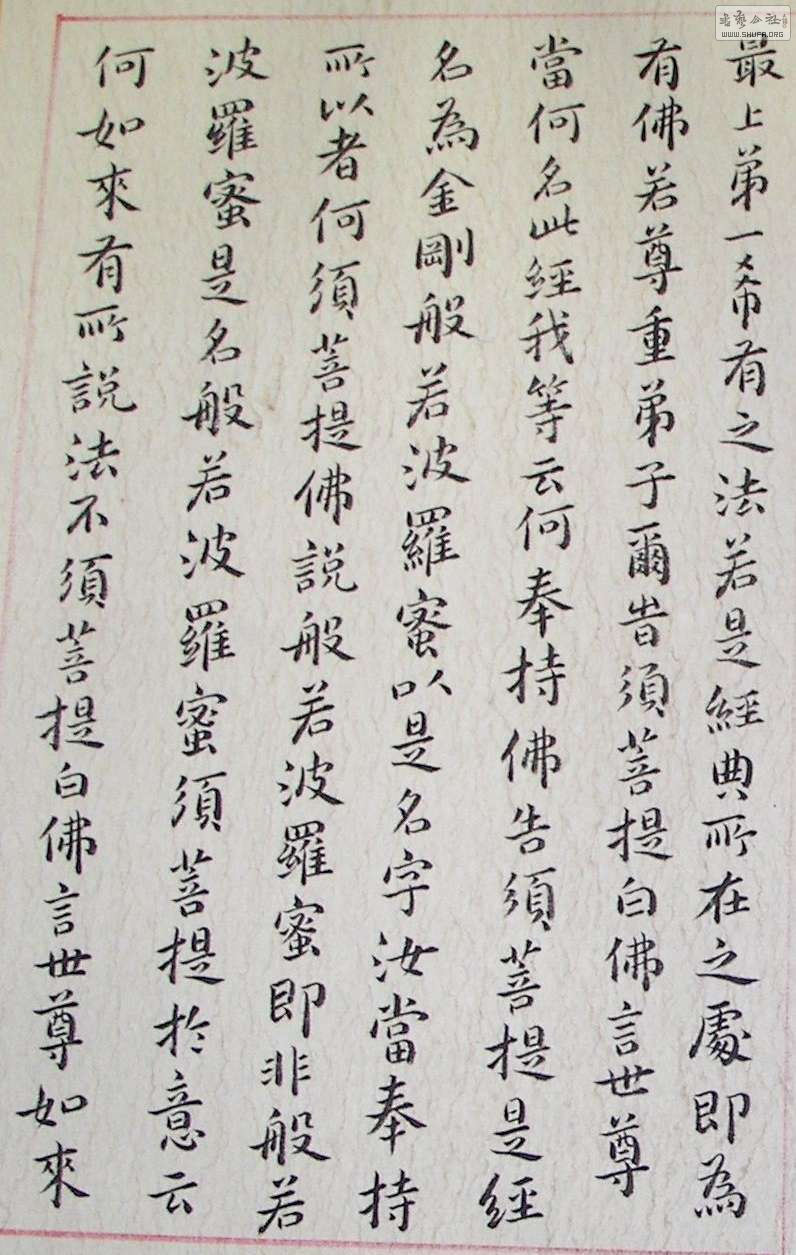 最上第一希有之法若是經典所在之處即為
有佛若尊重弟子爾時須菩提白佛言世尊
當何名此經我等云何奉持佛告須菩提是經
名為金剛般若波羅蜜以是名字汝當奉持
所以者何須菩提佛說般若波羅蜜即非般若
波羅蜜是名般若波羅蜜須菩提於意云
何如來有所說法不須菩提白佛言世尊如來
WWW.SHUFA.ORG